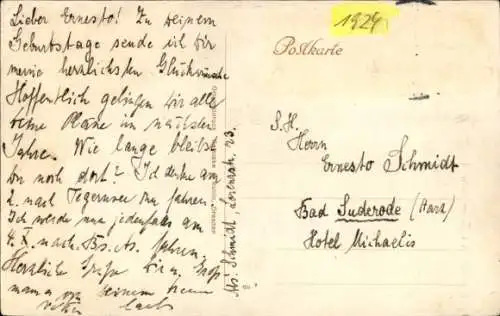 Lieber Ernesto! Zu Deinem
Geburtstage sende ich Dir
meine herzlichsten Glückwünsche
Hoffentlich gelingen Dir alle
Deine Pläne im nächsten
Jahre. Wie lange bleibst
Du noch dort? Ich denke am
2. nach Tegernsee zu fahren.
Ich werde nun jedenfalls am
4. X. nach Bs. As. fahren.
Herzliche Grüße Dir u. Gross
mama von Deinem treuen
Vetter
1929
Postkarte
S. H.
Herrn
Ernesto Schmidt
Bad Suderode (Harz)
Hotel Michaelis
Abs. Schmidt, 23.